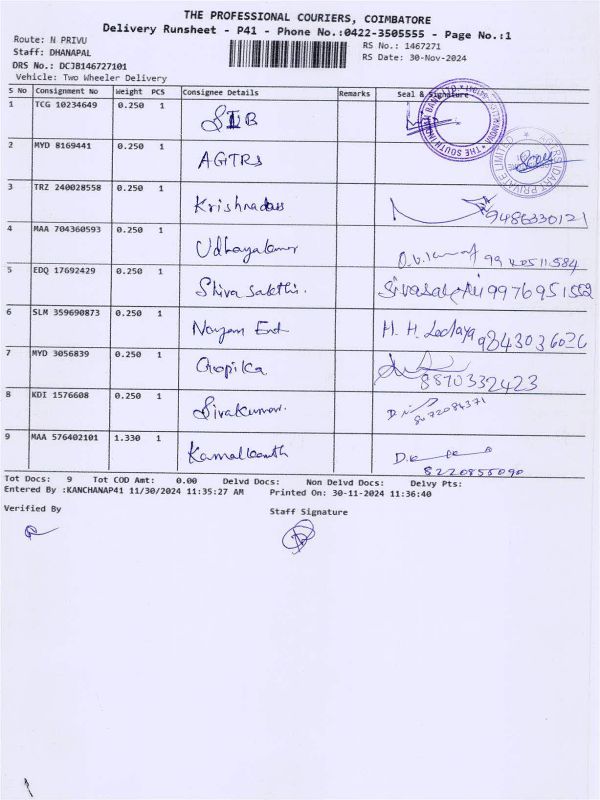 THE PROFESSIONAL COURIERS, COIMBATORE
Delivery Runsheet - P41 - Phone No.:0422-3505555 - Page No.:1
Route: N PRIVU
Staff: DHANAPAL
DRS No.: DCJB146727101
Vehicle: Two Wheeler Delivery
RS No.: 1467271
RS Date: 30-Nov-2024
S No Consignment No Weight PCS Consignee Details Remarks Seal & Signature
1 TCG 10234649 0.250 1 SIB
2 MYD 8169441 0.250 1 AGTRS
3 TRZ 240028558 0.250 1 Krishnadass 9486330121
4 MAA 704360593 0.250 1 Udhayakumar
5 EDQ 17692429 0.250 1 Shiva sakthi. Sivasakthi 9976951552
6 SLM 359690873 0.250 1 Nayam Ent H. H. 9843036026
7 MYD 3056839 0.250 1 Gropika 8870332423
8 KDI 1576608 0.250 1 Sivakumar.
9 MAA 576402101 1.330 1 Kamalkanth 8220855090
Tot Docs: 9 Tot COD Amt: 0.00 Delvd Docs: Non Delvd Docs: Delvy Pts:
Entered By :KANCHANAP41 11/30/2024 11:35:27 AM Printed On: 30-11-2024 11:36:40
Verified By Staff Signature